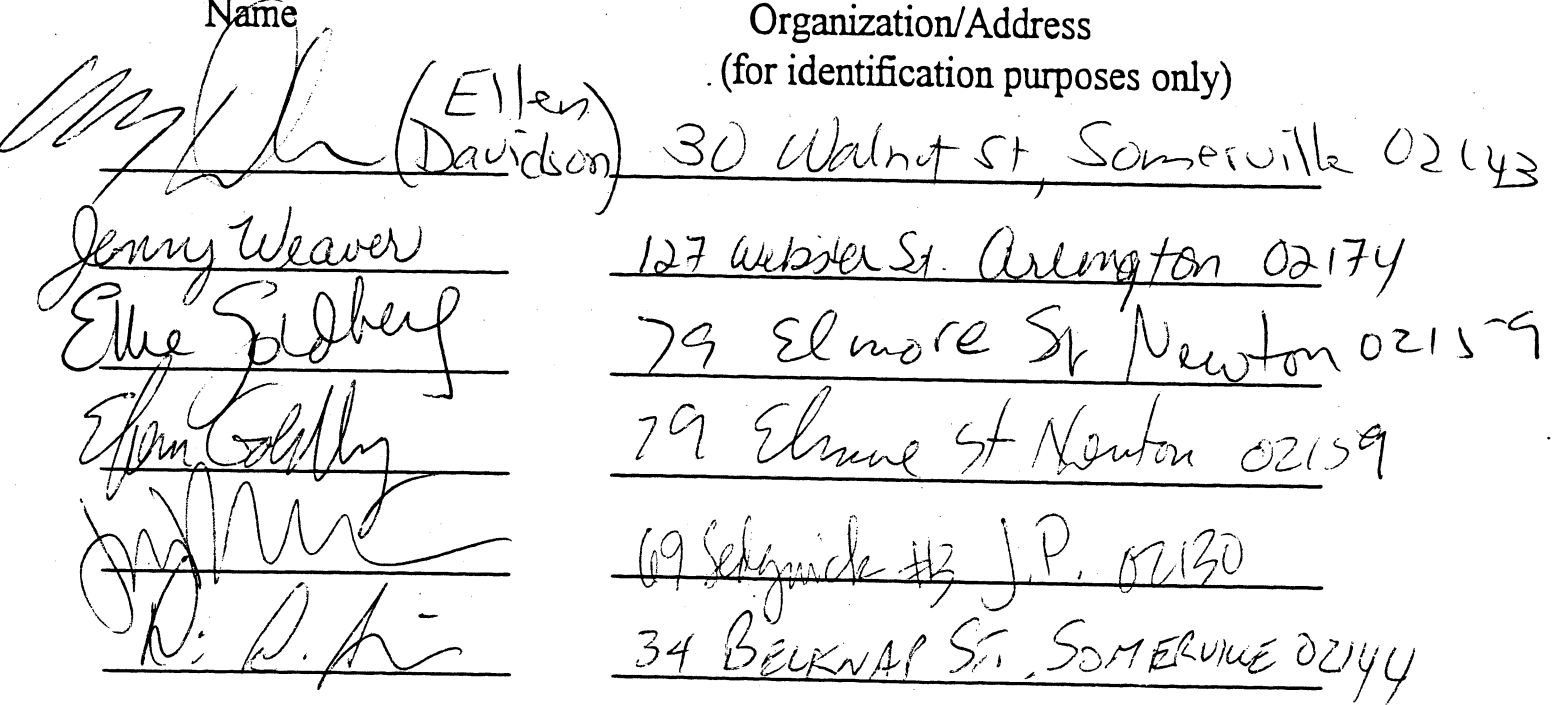 Name Organization/Address
(for identification purposes only)
(Ellen
Davidson) 30 Walnut St, Somerville 02143
Jenny Weaver 127 Webster St. Arlington 02174
Ellie Goldberg 79 Elmore St Newton 02159
79 Elmore St Newton 02159
69 Sedgwick #3 J.P. 02130
34 BELKNAP ST. SOMERVILLE 02144